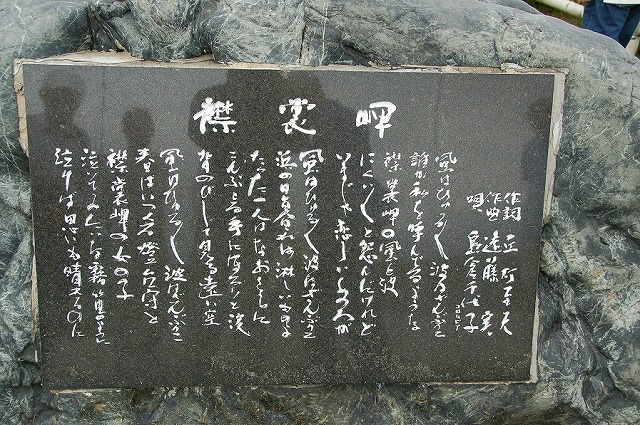 襟裳岬
作詞 丘灯至夫
作曲 遠藤 実
唄 島倉千代子
コロムビア
風はひゅる〱 波はざんぶりこ
誰か私を呼んでるような
襟裳岬の風と波
にくい〱と怨んだけれど
いまじゃ恋しいあの人が
風はひゅる〱 波はざんぶりこ
浜の日昏れは淋しいものよ
たった一人はなおさらに
こんぶとる手にほろりと涙
せのびして見る遠い空
風はひゅる〱 波はざんぶりこ
春はいつくる燈台守と
襟裳岬の女の子
泣いてみたいな霧笛のように
泣けば思いも晴れるのに